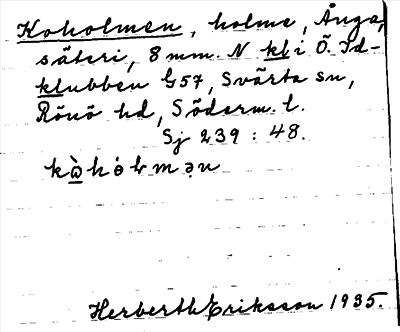 Koholmen, holme, Ånga,
säteri, 8 mm. N kl i Ö. Id-
klubben G57, Svärta sn,
Rönö hd, Söderm. l.
Sj 239 : 48.
Herberth Eriksson 1935.